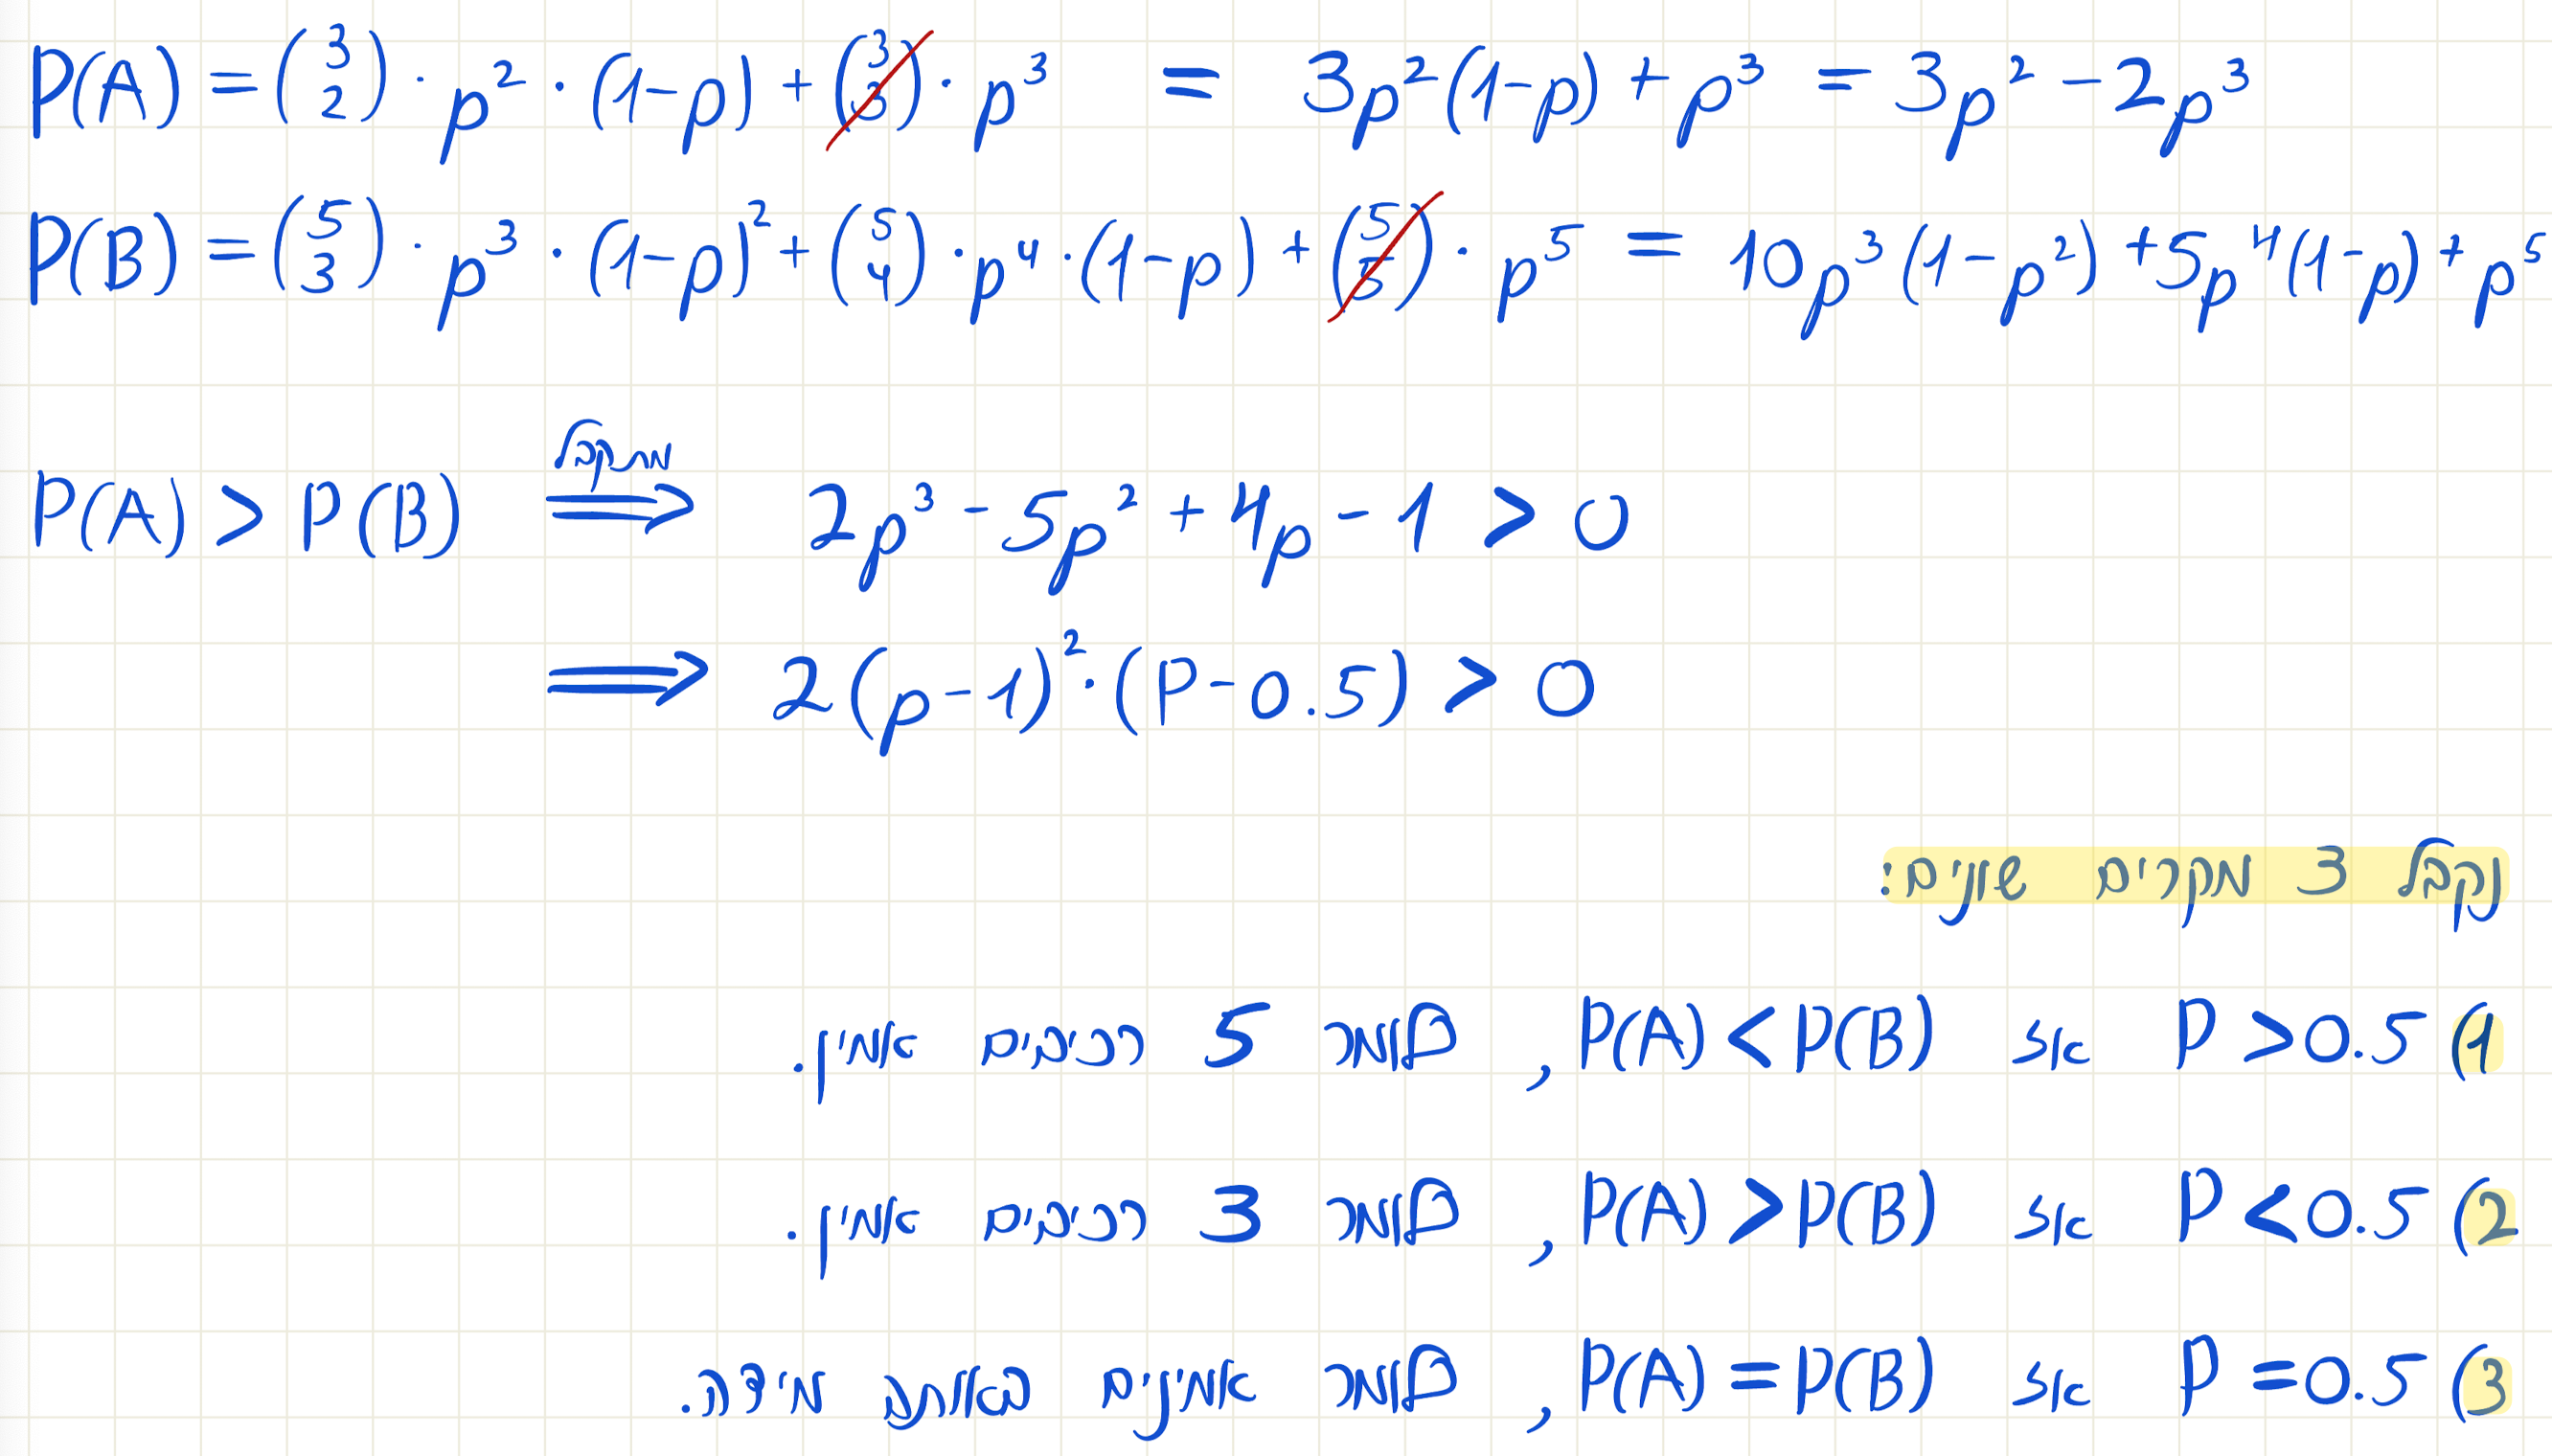 P(A) = (3 2) · p² · (1-p) + (3 3) · p³ = 3p²(1-p) + p³ = 3p² - 2p³
P(B) = (5 3) · p³ · (1-p)² + (5 4) · p⁴ · (1-p) + (5 5) · p⁵ = 10p³(1-p²) + 5p⁴(1-p) + p⁵
מתקבל
P(A) > P(B) ⟹ 2p³ - 5p² + 4p - 1 > 0
⟹ 2(p-1)² · (P-0.5) > 0
נקבל 3 מקרים שונים:
1) P > 0.5 אז P(A) < P(B), כלומר 5 רכיבים אמין.
2) P < 0.5 אז P(A) > P(B), כלומר 3 רכיבים אמין.
3) P = 0.5 אז P(A) = P(B), כלומר אמינים באותה מידה.